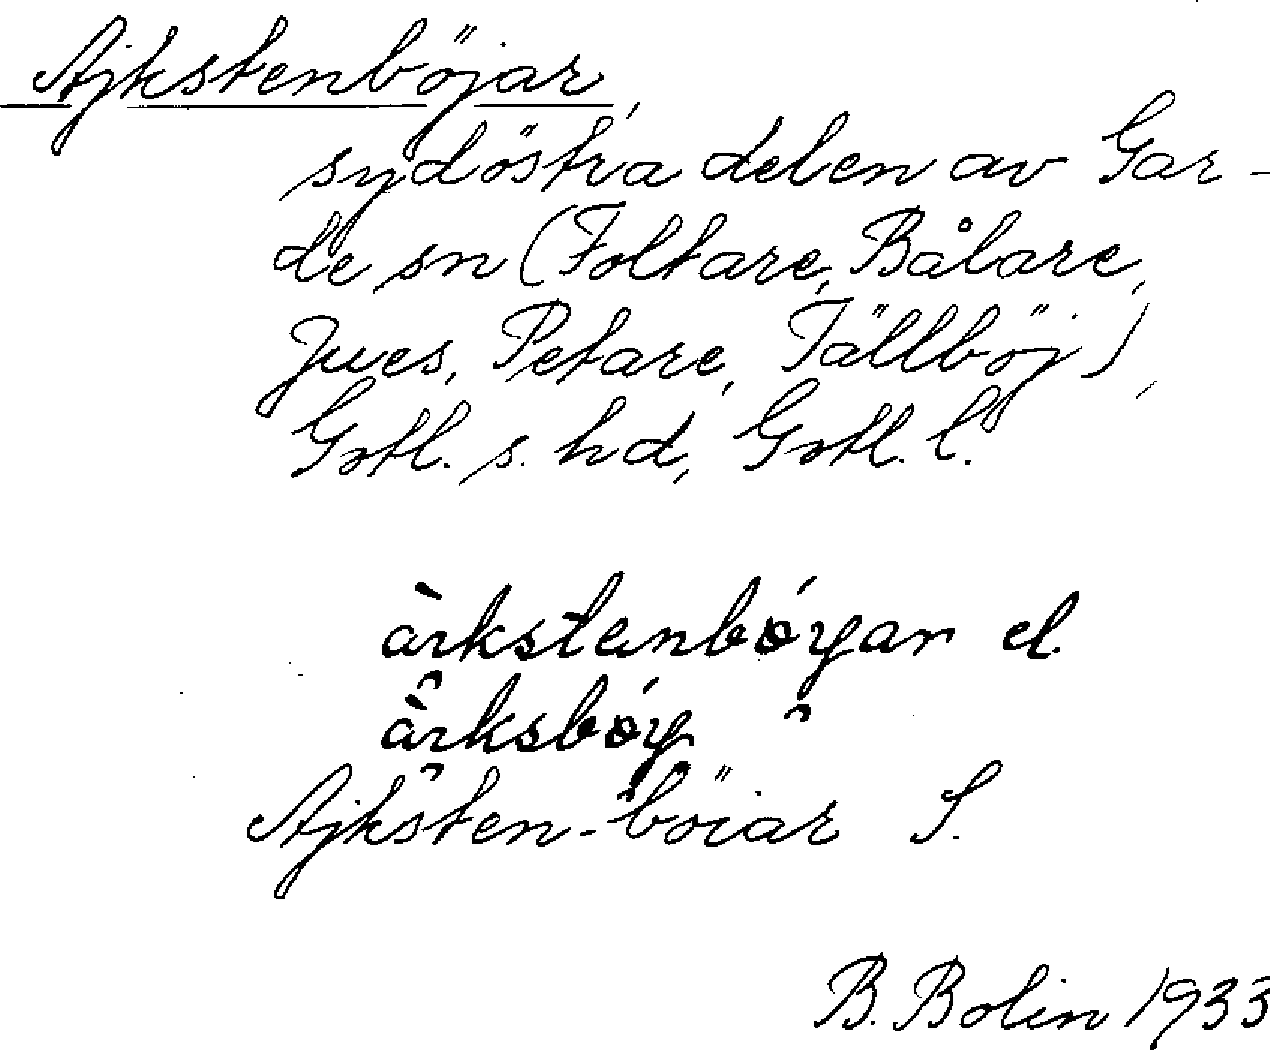 Ajkstenböjar,
sydöstra delen av Gar-
de sn (Foltare, Bålare,
Juves, Petare, Tällböj),
Gotl. s. hd, Gotl. l.
àrkstenbóyar el.
àrksbóy
Ajksten-böiar S.
B. Bolin 1933